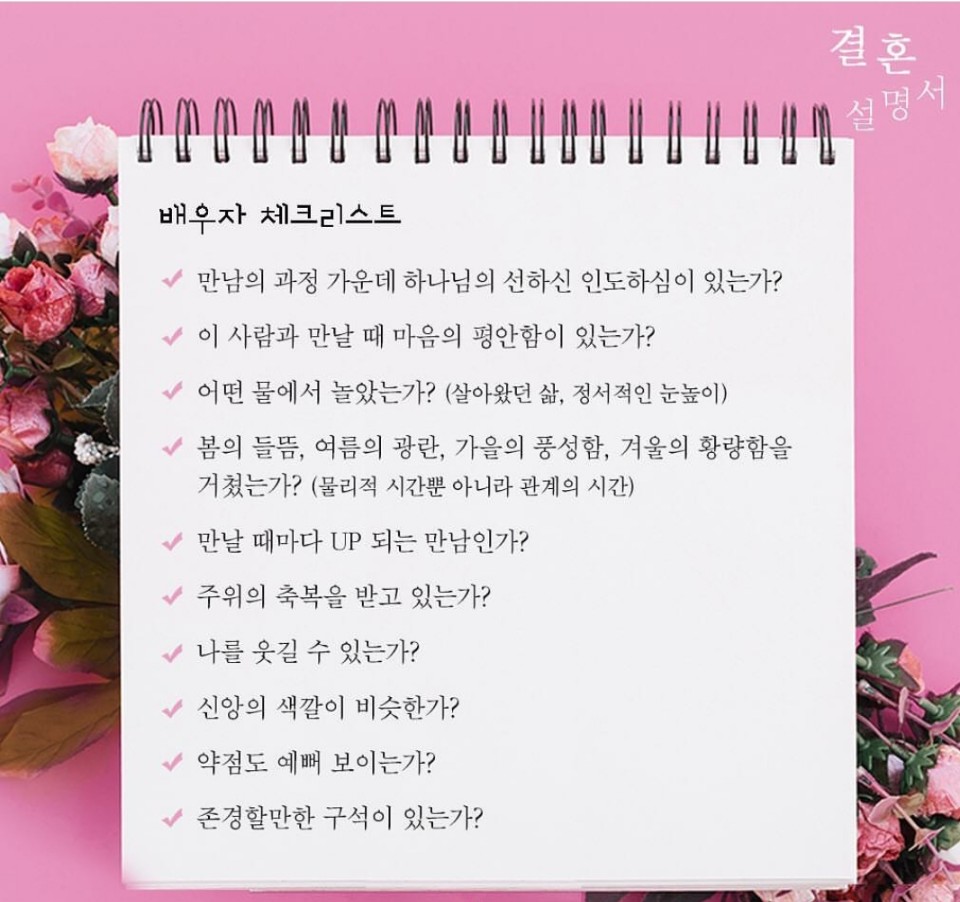 결혼
설명서
배우자 체크리스트
만남의 과정 가운데 하나님의 선하신 인도하심이 있는가?
이 사람과 만날 때 마음의 평안함이 있는가?
어떤 물에서 놀았는가? (살아왔던 삶, 정서적인 눈높이)
봄의 들뜸, 여름의 광란, 가을의 풍성함, 겨울의 황량함을
거쳤는가? (물리적 시간뿐 아니라 관계의 시간)
만날 때마다 UP 되는 만남인가?
주위의 축복을 받고 있는가?
나를 웃길 수 있는가?
신앙의 색깔이 비슷한가?
약점도 예뻐 보이는가?
존경할만한 구석이 있는가?